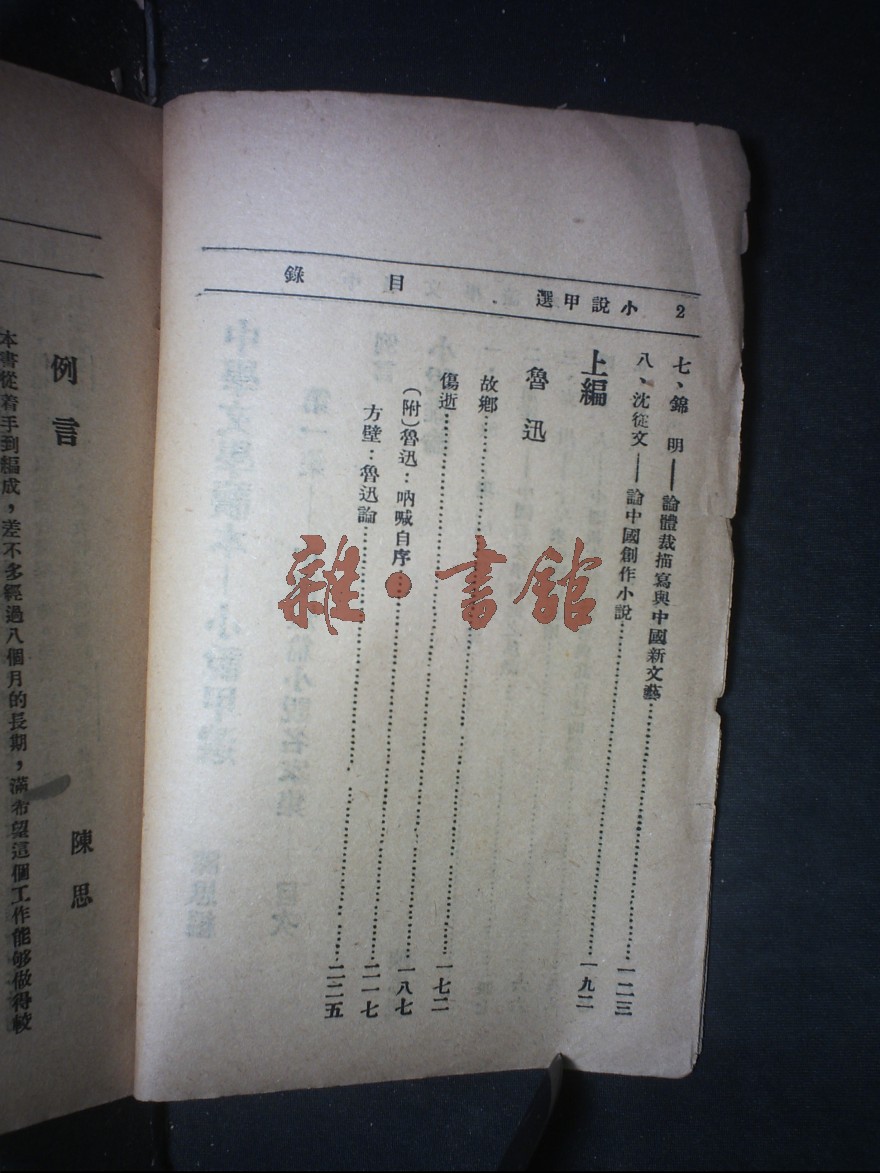 2 小說甲選 目錄
七、錦 明——論體裁描寫與中國新文藝……一二三
八、沈從文——論中國創作小說……一九二
上編
魯迅
故鄉……一七二
傷逝……一八七
(附)魯迅：吶喊自序……二一七
方壁：魯迅論……二二五
例言
陳思
本書從着手到編成，差不多經過八個月的長期，滿希望這個工作能够做得較
雜·書館